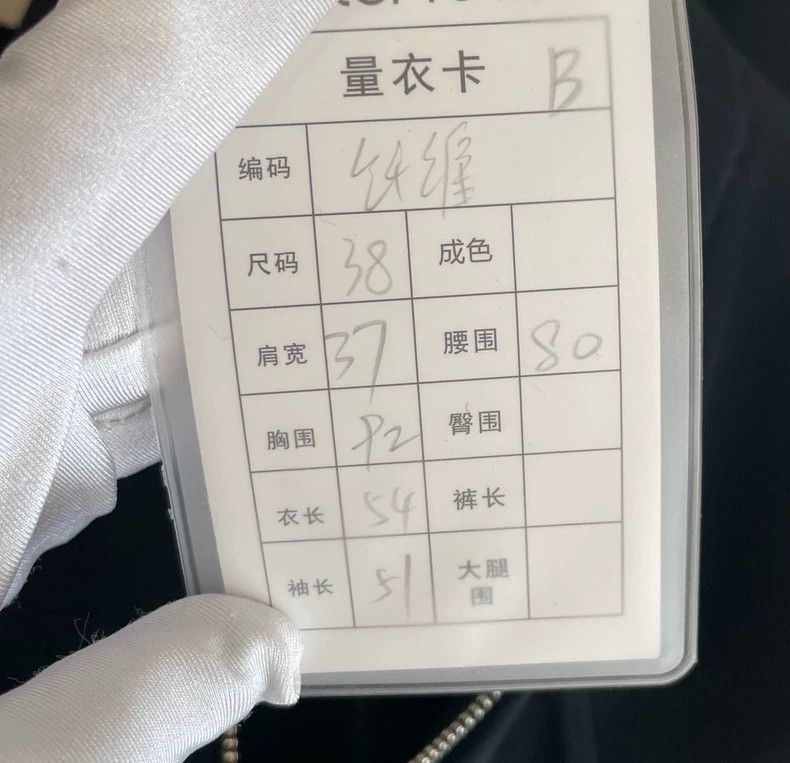 量衣卡 B
编码 纤维
尺码 38 成色
肩宽 37 腰围 80
胸围 92 臀围
衣长 54 裤长
袖长 51 大腿围